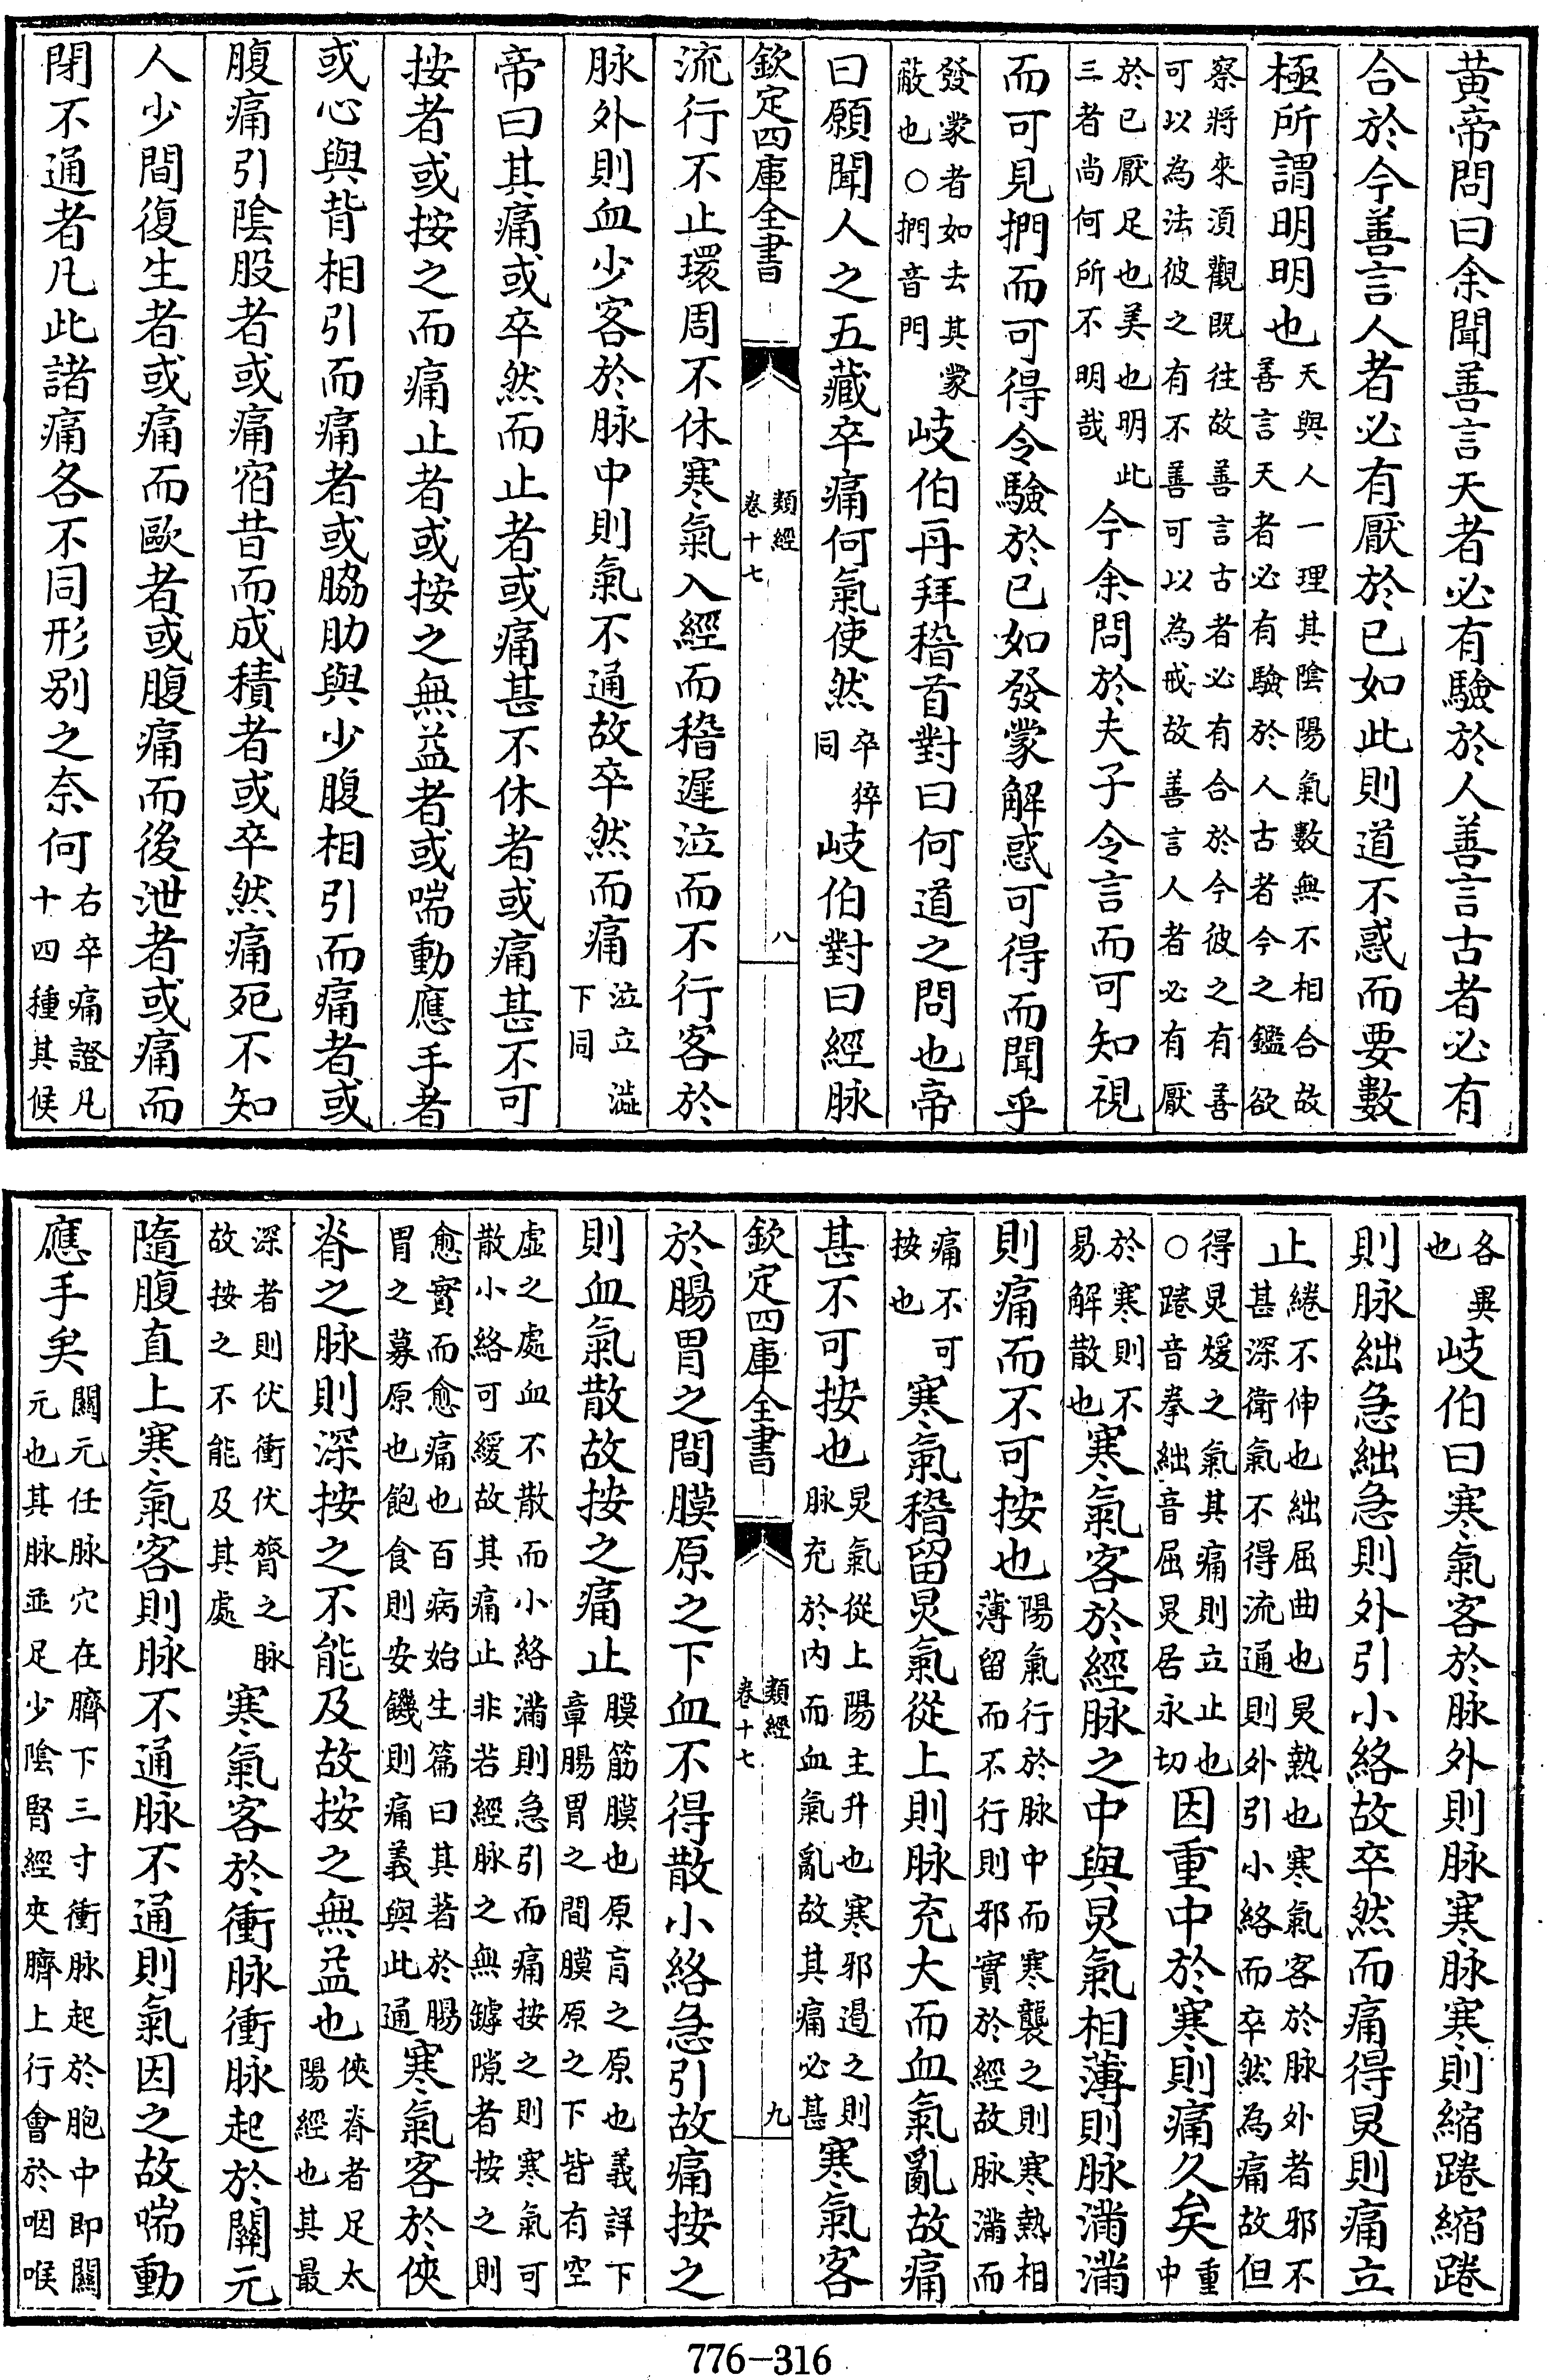 黄帝問曰余聞善言天者必有驗於人善言古者必有
合於今善言人者必有厭於已如此則道不惑而要數
極所謂明明也天與人一理其陰陽氣數無不相合故善言天者必有驗於人古者今之鑑欲
察將來須觀既往故善言古者必有合於今彼之有善可以為法彼之有不善可以為戒故善言人者必有厭
於已厭足也美也明此三者尚何所不明哉今余問於夫子令言而可知視
而可見捫而可得令驗於已如發蒙解惑可得而聞乎
發蒙者如去其蒙蔽也○捫音門岐伯再拜稽首對曰何道之問也帝
曰願聞人之五藏卒痛何氣使然卒猝同岐伯對曰經脉
欽定四庫全書 類經 卷十七 八
流行不止環周不休寒氣入經而稽遲泣而不行客於
脉外則血少客於脉中則氣不通故卒然而痛泣立澁下同
帝曰其痛或卒然而止者或痛甚不休者或痛甚不可
按者或按之而痛止者或按之無益者或喘動應手者
或心與背相引而痛者或脇肋與少腹相引而痛者或
腹痛引陰股者或痛宿昔而成積者或卒然痛死不知
人少間復生者或痛而歐者或腹痛而後泄者或痛而
閉不通者凡此諸痛各不同形别之奈何右卒痛證凡十四種其候
各異也岐伯曰寒氣客於脉外則脉寒脉寒則縮踡縮踡
則脉絀急絀急則外引小絡故卒然而痛得炅則痛立
止綣不伸也絀屈曲也炅熱也寒氣客於脉外者邪不甚深衛氣不得流通則外引小絡而卒然為痛故但
得炅煖之氣其痛則立止也○踡音拳絀音屈炅居永切因重中於寒則痛久矣重中
於寒則不易解散也寒氣客於經脉之中與炅氣相薄則脉滿滿
則痛而不可按也陽氣行於脉中而寒襲之則寒熱相薄留而不行則邪實於經故脉滿而
痛不可按也寒氣稽留炅氣從上則脉充大而血氣亂故痛
甚不可按也炅氣從上陽主升也寒邪遏之則脉充於内而血氣亂故其痛必甚寒氣客
欽定四庫全書 類經 卷十七 九
於腸胃之間膜原之下血不得散小絡急引故痛按之
則血氣散故按之痛止膜筋膜也原肓之原也義詳下章腸胃之間膜原之下皆有空
虛之處血不散而小絡滿則急引而痛按之則寒氣可散小絡可緩故其痛止非若經脉之無罅隙者按之則
愈實而愈痛也百病始生篇曰其著於腸胃之募原也飽食則安饑則痛義與此通寒氣客於俠
脊之脉則深按之不能及故按之無益也俠脊者足太陽經也其最
深者則伏衝伏膂之脉故按之不能及其處寒氣客於衝脉衝脉起於關元
隨腹直上寒氣客則脉不通脉不通則氣因之故喘動
應手矣關元任脉穴在臍下三寸衝脉起於胞中即關元也其脉並足少陰腎經夾臍上行會於咽喉
776-316